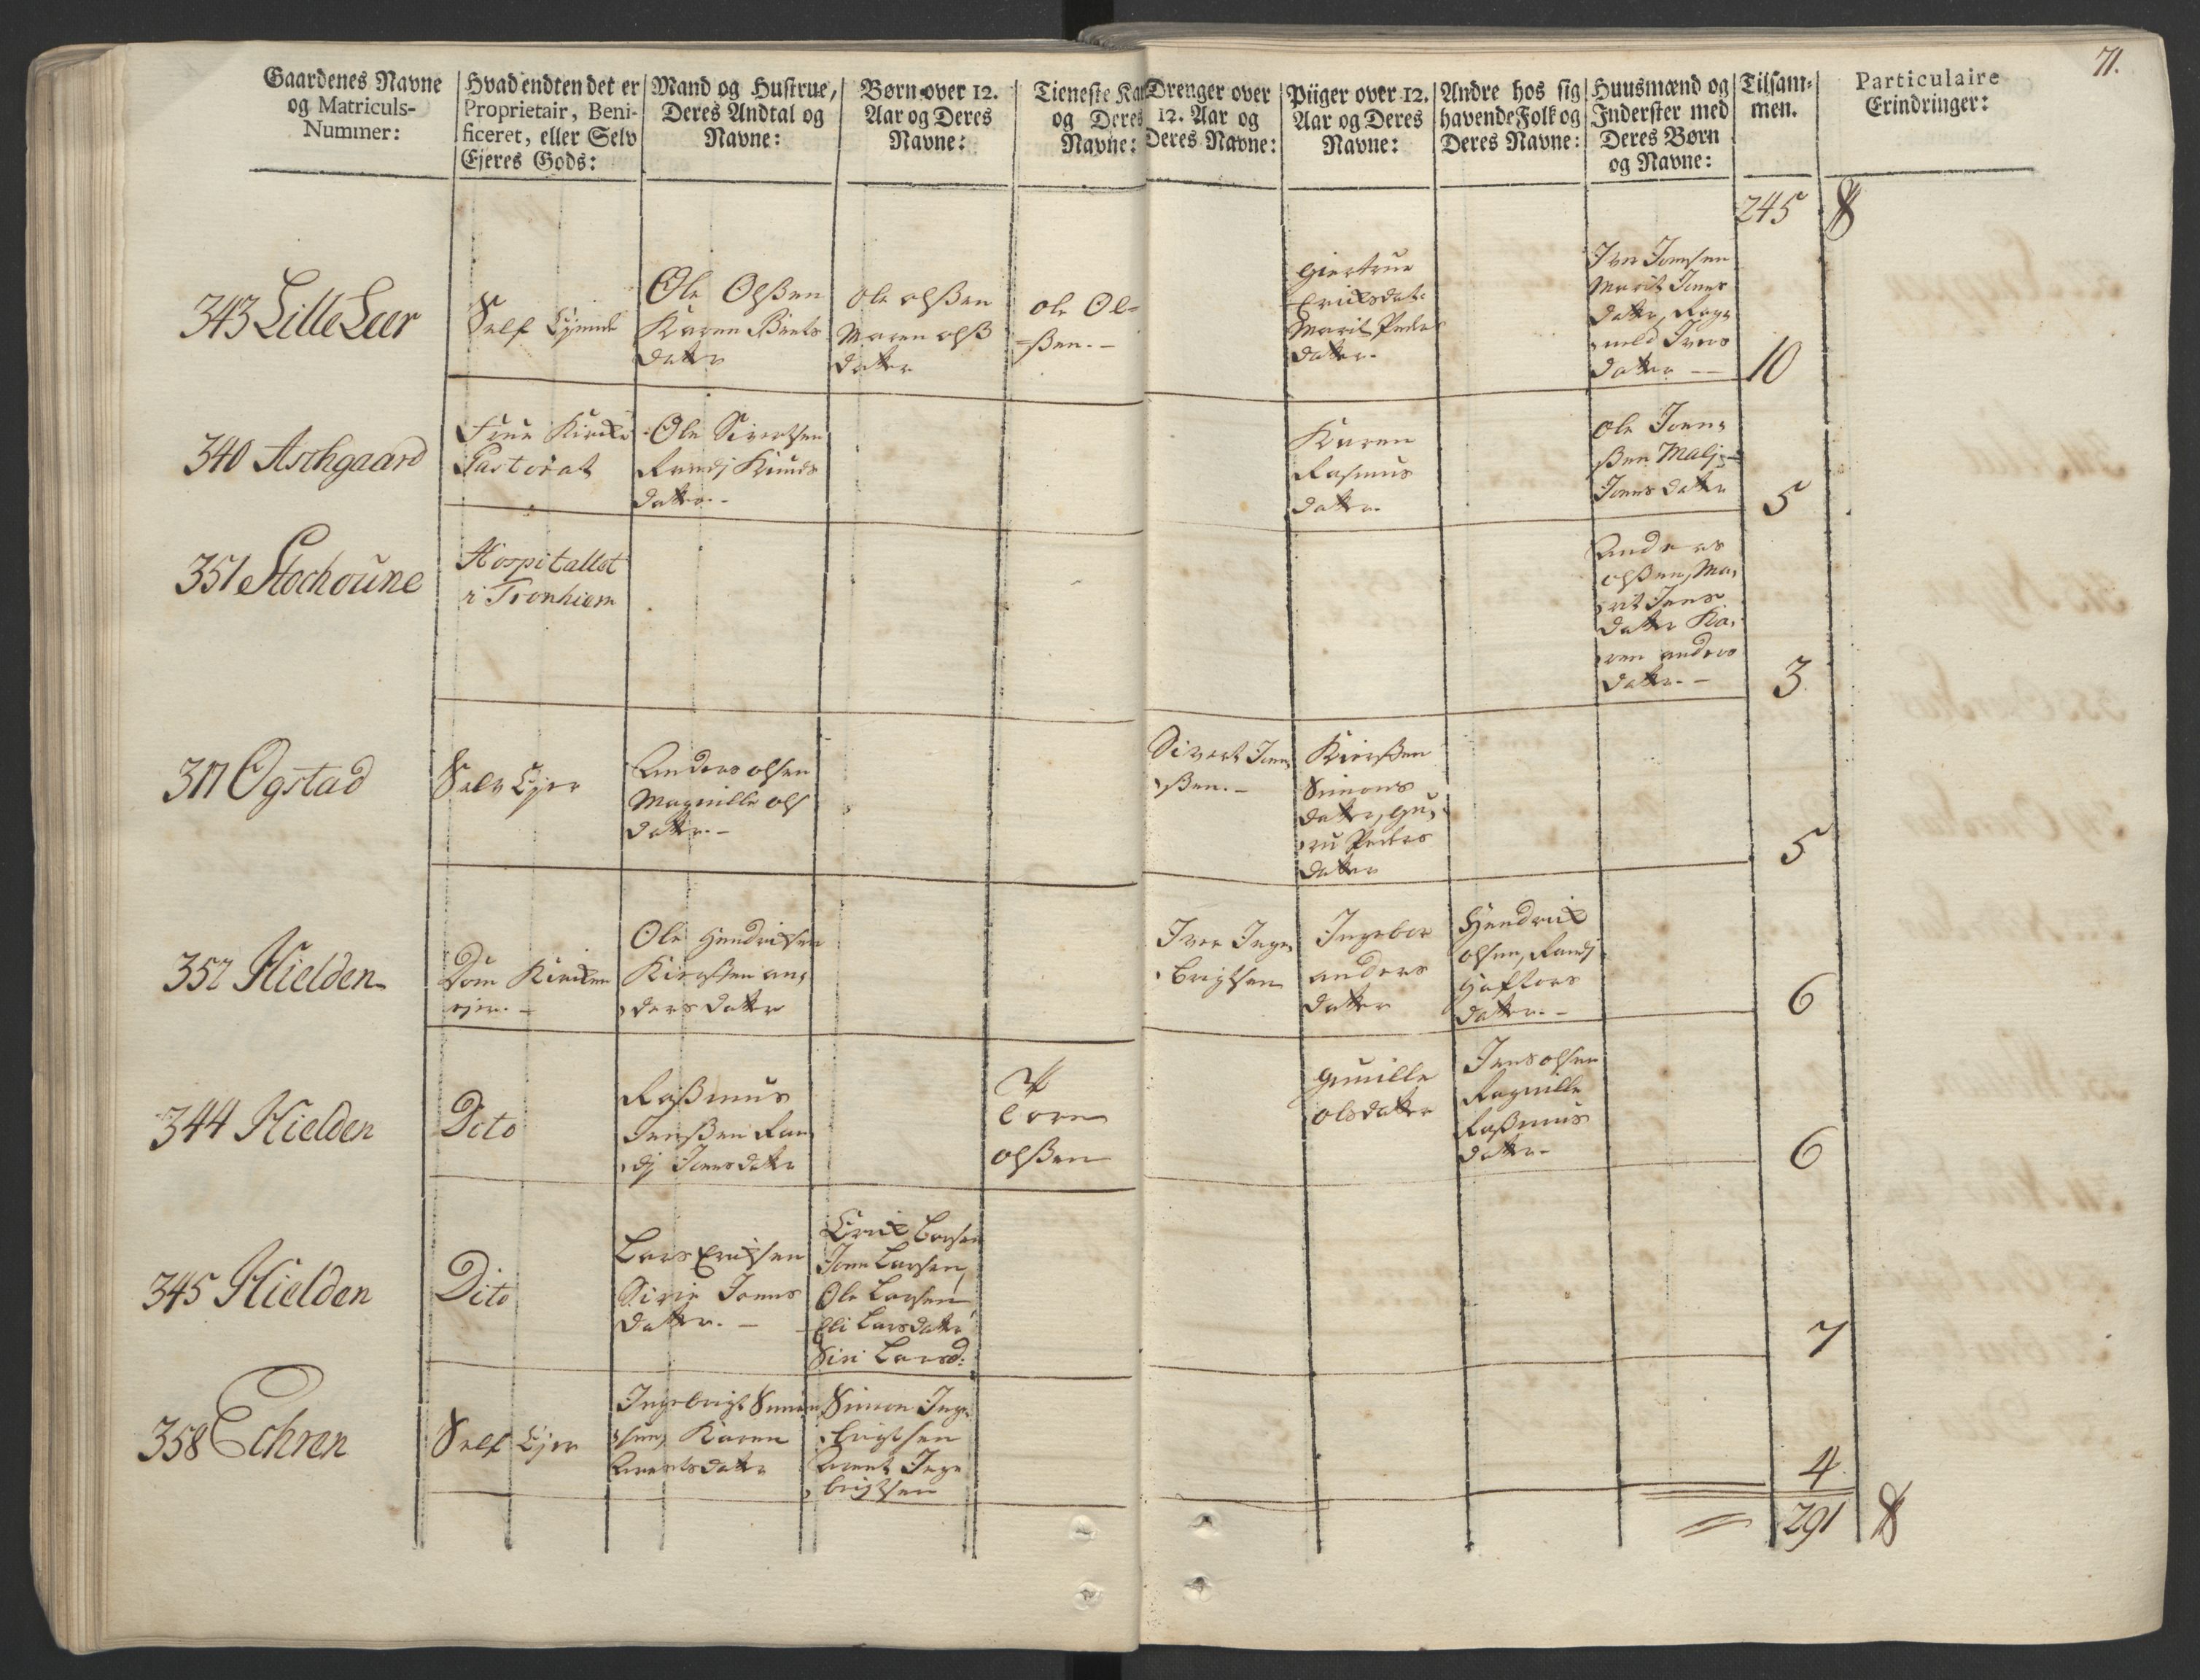 71.
Gaardenes Navne
og Matriculs-
Nummer:
Hvad endten det er
Proprietair, Beni-
ficeret, eller Selv
Ejeres Gods:
Mand og Hustrue,
Deres Andtal og
Navne:
Børn over 12.
Aar og Deres
Navne:
Tieneste Kar
og Deres
Navne:
Drenger over
12. Aar og
Deres Navne:
Piiger over 12.
Aar og Deres
Navne:
Andre hos sig
havende Folk og
Deres Navne:
Huusmænd og
Inderster med
Deres Børn
og Navne:
Tilsam-
men.
Particulaire
Erindringer:
245
343 Lille Leer
Self Ejende
Ole Olßen
Karen Bents
datter
Ole olßen
Maren olß
datter
ole Ol=
=ßen.-
Giertrue
Ericksdat:
Marit Peders
datter-
Iver Joensen
Marit Joens
datter, Rag=
nild Ivers
datter --
10
340 Aschgaard
Frue Kircke
Pastorat
Ole Sivertsen
Randj Knuds
datter.-
Karen
Rasmus
datter
Ole Joen=
ßen Malj=
Joens datter
5
351 Stochoune
Hospitallet
i Tronhiem
Anders
olßen, Ma,
rit Jens
datter Ka,
ren anders
datter.-
3
317 Ogstad
Selv Ejer
Anders olsen
Magnille ols
datter.-
Sivert Joen
ßen.-
Kierßen
Simons
datter, Gu,
ru Peders
datter
5
352 Hielden
Dom Kircken
ejer.-
Ole Hendrichsen
Kierßen an,
ders datter
Iver Inge
brigtsen
Ingebor
anders
datter
Hendrick
olsen, Randj
Haftors
datter.-
6
344 Hielden
Dito
Raßmus
Jenßen Ran
dj Joensdatter
Tore
olßen
Gunille
olsdatter
Jens olsen
Ragnille
Raßmus
datter-
6
345 Hielden
Dito
Lars Ericksen
Sirie Joens
datter.-
Erick Larsen
Joen Larsen,
Ole Larsen,
Eli Larsdatter
Siri Larsd:
7
358 Echren
Self Ejer
Ingebrigt Simon
sen, Karen
Arentsdatter
Simon Inge
brigtsen
Arent Inge
brigtsen
4
291